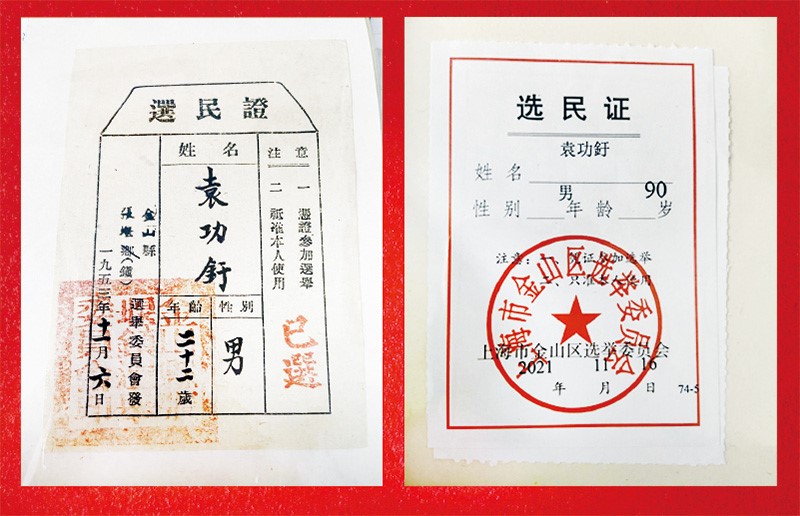 選民證
注意
一 憑證參加選舉
二 祇准本人使用
已選
姓名
袁功釪
性別
男
年齡
二十二歲
金山縣
張堰鄉(鎮)
選舉委員會發
一九五三年十一月六日
选民证
姓名 袁功釪
性别 男 年龄 90 岁
注意：一、凭证参加选举
二、只准本人使用
上海市金山区选举委员会
上海市金山区选举委员会
2021 年 11 月 16 日
74-5